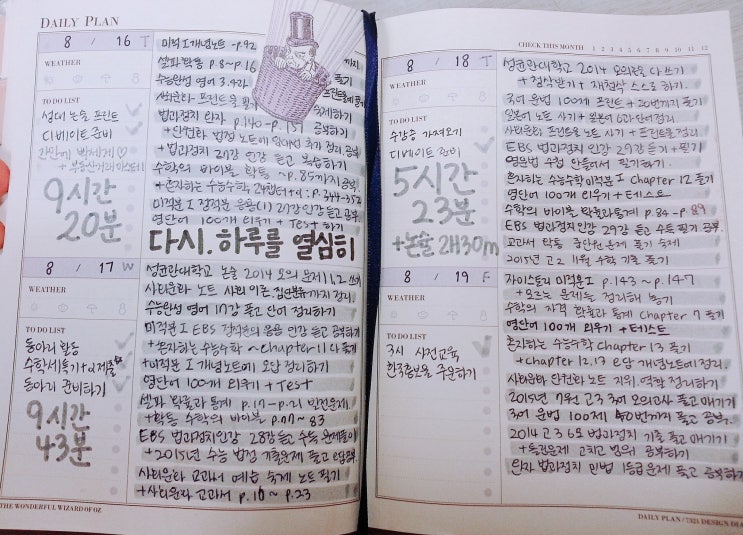 DAILY PLAN
8 / 16 T
WEATHER
TO DO LIST
성대 논술 프린트
디베이트 준비
9시간
20분
미적I개념노트 ~p.92 까지
셀파 확통 p.8~p.16 풀기
수능완성 영어 3.4강
사회문화 프린트물 필기
법과정치 인강 p.140~p.151 공부하기
+ 법과정치 27강 인강 듣고 복습하기
수학의 바이블 확통 ~p.85까지 공부
+혼자하는 수능수학
영단어 100개 외우기 + Test 하기
다시. 하루를 열심히
8 / 17 W
WEATHER
TO DO LIST
동아리 활동
동아리 준비하기
9시간
43분
성균관대학교 논술 2014 모의 문제 1,2 쓰기
사회문화 노트 까지 정리
수능완성 영어 17강 풀고 단어 정리하기
미적분I EBS 인강 듣고 공부하기
+혼자하는 수능수학 ~Chapter 11 다 풀기
+미적분I 개념노트에 오답 정리하기
영단어 100개 외우기 + Test
셀파 확률과 통계 p.17~p.21 발전문제
+확통 수학의 바이블 p.77~83
EBS 법과정치인강 28강 듣고 수특
+2015년 수능 법정 기출문제 풀고
사회문화 교과서 노트 필기
+사회문화 교과서 p.10~p.23
THE WONDERFUL WIZARD OF OZ
CHECK THIS MONTH 1 2 3 4 5 6 7 8 9 10 11 12
8 / 18 T
WEATHER
TO DO LIST
수능증 가져오기
디베이트 준비
5시간
23분
+논술 2H30m
성균관대학교 2014 모의논술 다 쓰기
+ 첨삭받기 + 재첨삭 스스로 하기.
국어 문법 100제 프린트 +20번까지 풀기
일본어 노트 사기 + 일본어 6과 단어정리
사회문화 프린트물 노트 사기 + 프린트물정리
EBS 법과정치인강 29강 듣기 +필기
영문법 수첩 만들어서 필기하기.
혼자하는 수능수학미적분I Chapter 12 풀기
영단어 100개 외우기 +테스트
수학의 바이블 확률과통계 p.84~p.89
EBS 법과정치인강 29강 듣고 수특 필기 공부.
교과서 확통 중단원 문제 풀기 숙제
2015년 고2 11월 수학 기출 풀기
8 / 19 F
WEATHER
TO DO LIST
3시 사전교육
한국홍보물 주문하기
자이스토리 미적분I p.143~p.147
+ 모르는 문제들 정리해 놓기
수학의 자격 확률과 통계 Chapter 7 풀기
영단어 100개 외우기 +테스트
혼자하는 수능수학 Chapter 13 풀기
+chapter 12.13 오답 개념노트에 정리.
2015년 7월 고3 국어 모의고사 풀고 매기기
국어 문법 100제 40번까지 풀고 공부.
2014 고3 6모 법과정치 기출 풀고 매기기
+ 틀린문제 고치고 범위 공부하기
인강 법과정치 민법 1등급 문제 풀고 공부하기
DAILY PLAN / 7321 DESIGN DIA